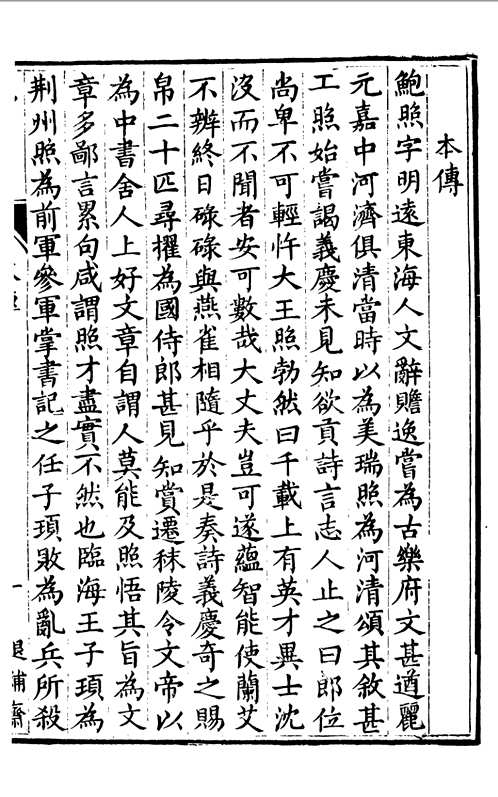 本傳
鮑照字明遠東海人文辭贍逸嘗為古樂府文甚遒麗
元嘉中河濟俱清當時以為美瑞照為河清頌其敘甚
工照始嘗謁義慶未見知欲貢詩言志人止之曰郎位
尚卑不可輕忤大王照勃然曰千載上有英才異士沈
沒而不聞者安可數哉大丈夫豈可遂蘊智能使蘭艾
不辨終日碌碌與燕雀相隨乎於是奏詩義慶奇之賜
帛二十匹尋擢為國侍郎甚見知賞遷秣陵令文帝以
為中書舍人上好文章自謂人莫能及照悟其旨為文
章多鄙言累句咸謂照才盡實不然也臨海王子頊為
荆州照為前軍參軍掌書記之任子頊敗為亂兵所殺
一
退補齋